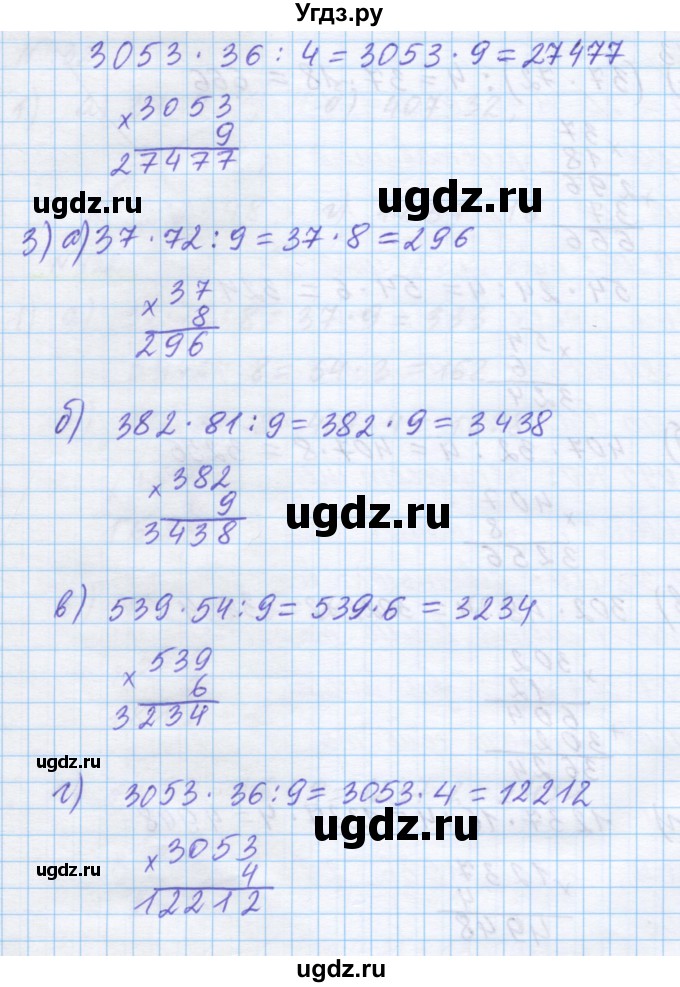 Угдз.ру
3053 · 36 : 4 = 3053 · 9 = 27477
× 3053
9
27477
ugdz.ru
ugdz.ru
3) а) 37 · 72 : 9 = 37 · 8 = 296
× 37
8
296
б) 382 · 81 : 9 = 382 · 9 = 3438
× 382
9
3438
ugdz.ru
в) 539 · 54 : 9 = 539 · 6 = 3234
× 539
6
3234
ugdz.ru
г) 3053 · 36 : 9 = 3053 · 4 = 12212
ugdz.ru
× 3053
4
12212
ugdz.ru
ugdz.ru